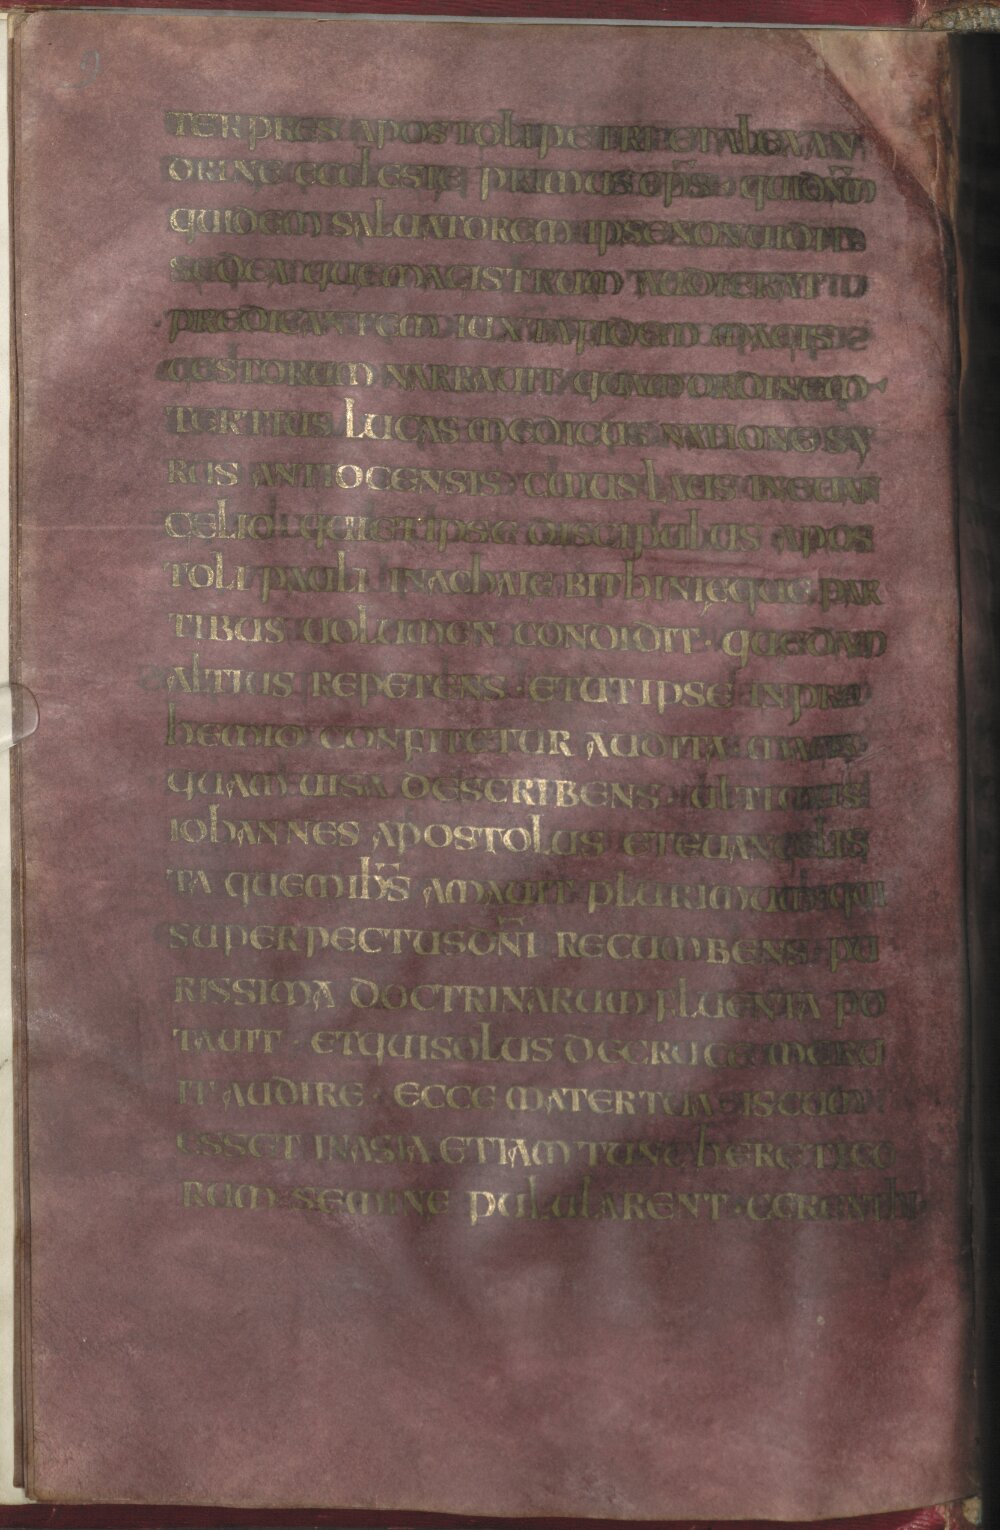 9
TERPRES APOSTOLI PETRI ET ALEXAN
DRINE ECCLESIE PRIMUS EPS · QUI DNM
QUIDEM SALUATOREM IPSE NON UIDIT
SED EA QUE MAGISTRUM AUDIERAT
PREDICANTEM IUXTA FIDEM MAGIS
GESTORUM NARRAUIT QUAM ORDINEM
TERTIUS LUCAS MEDICUS NATIONE SY
RUS ANTIOCENSIS CUIUS LAUS IN EUAN
GELIO · QUI ET IPSE DISCIPULUS APOS
TOLI PAULI IN ACHAIE BITHINIEQUE PAR
TIBUS UOLUMEN CONDIDIT · QUEDAM
ALTIUS REPETENS · ET UT IPSE IN PRO
HEMIO CONFITETUR AUDITA MAGIS
QUAM UISA DESCRIBENS · ULTIMUS
IOHANNES APOSTOLUS ET EUANGELIS
TA QUEM IHS AMAUIT PLURIMUM QUI
SUPER PECTUS DNI RECUMBENS · PU
RISSIMA DOCTRINARUM FLUENTA PO
TAUIT · ET QUI SOLUS DE CRUCE MERU
IT AUDIRE · ECCE MATER TUA · IS CUM
ESSET IN ASIA ETIAM TUNC HERETICO
RUM SEMINE PULULARENT · CERENTHI